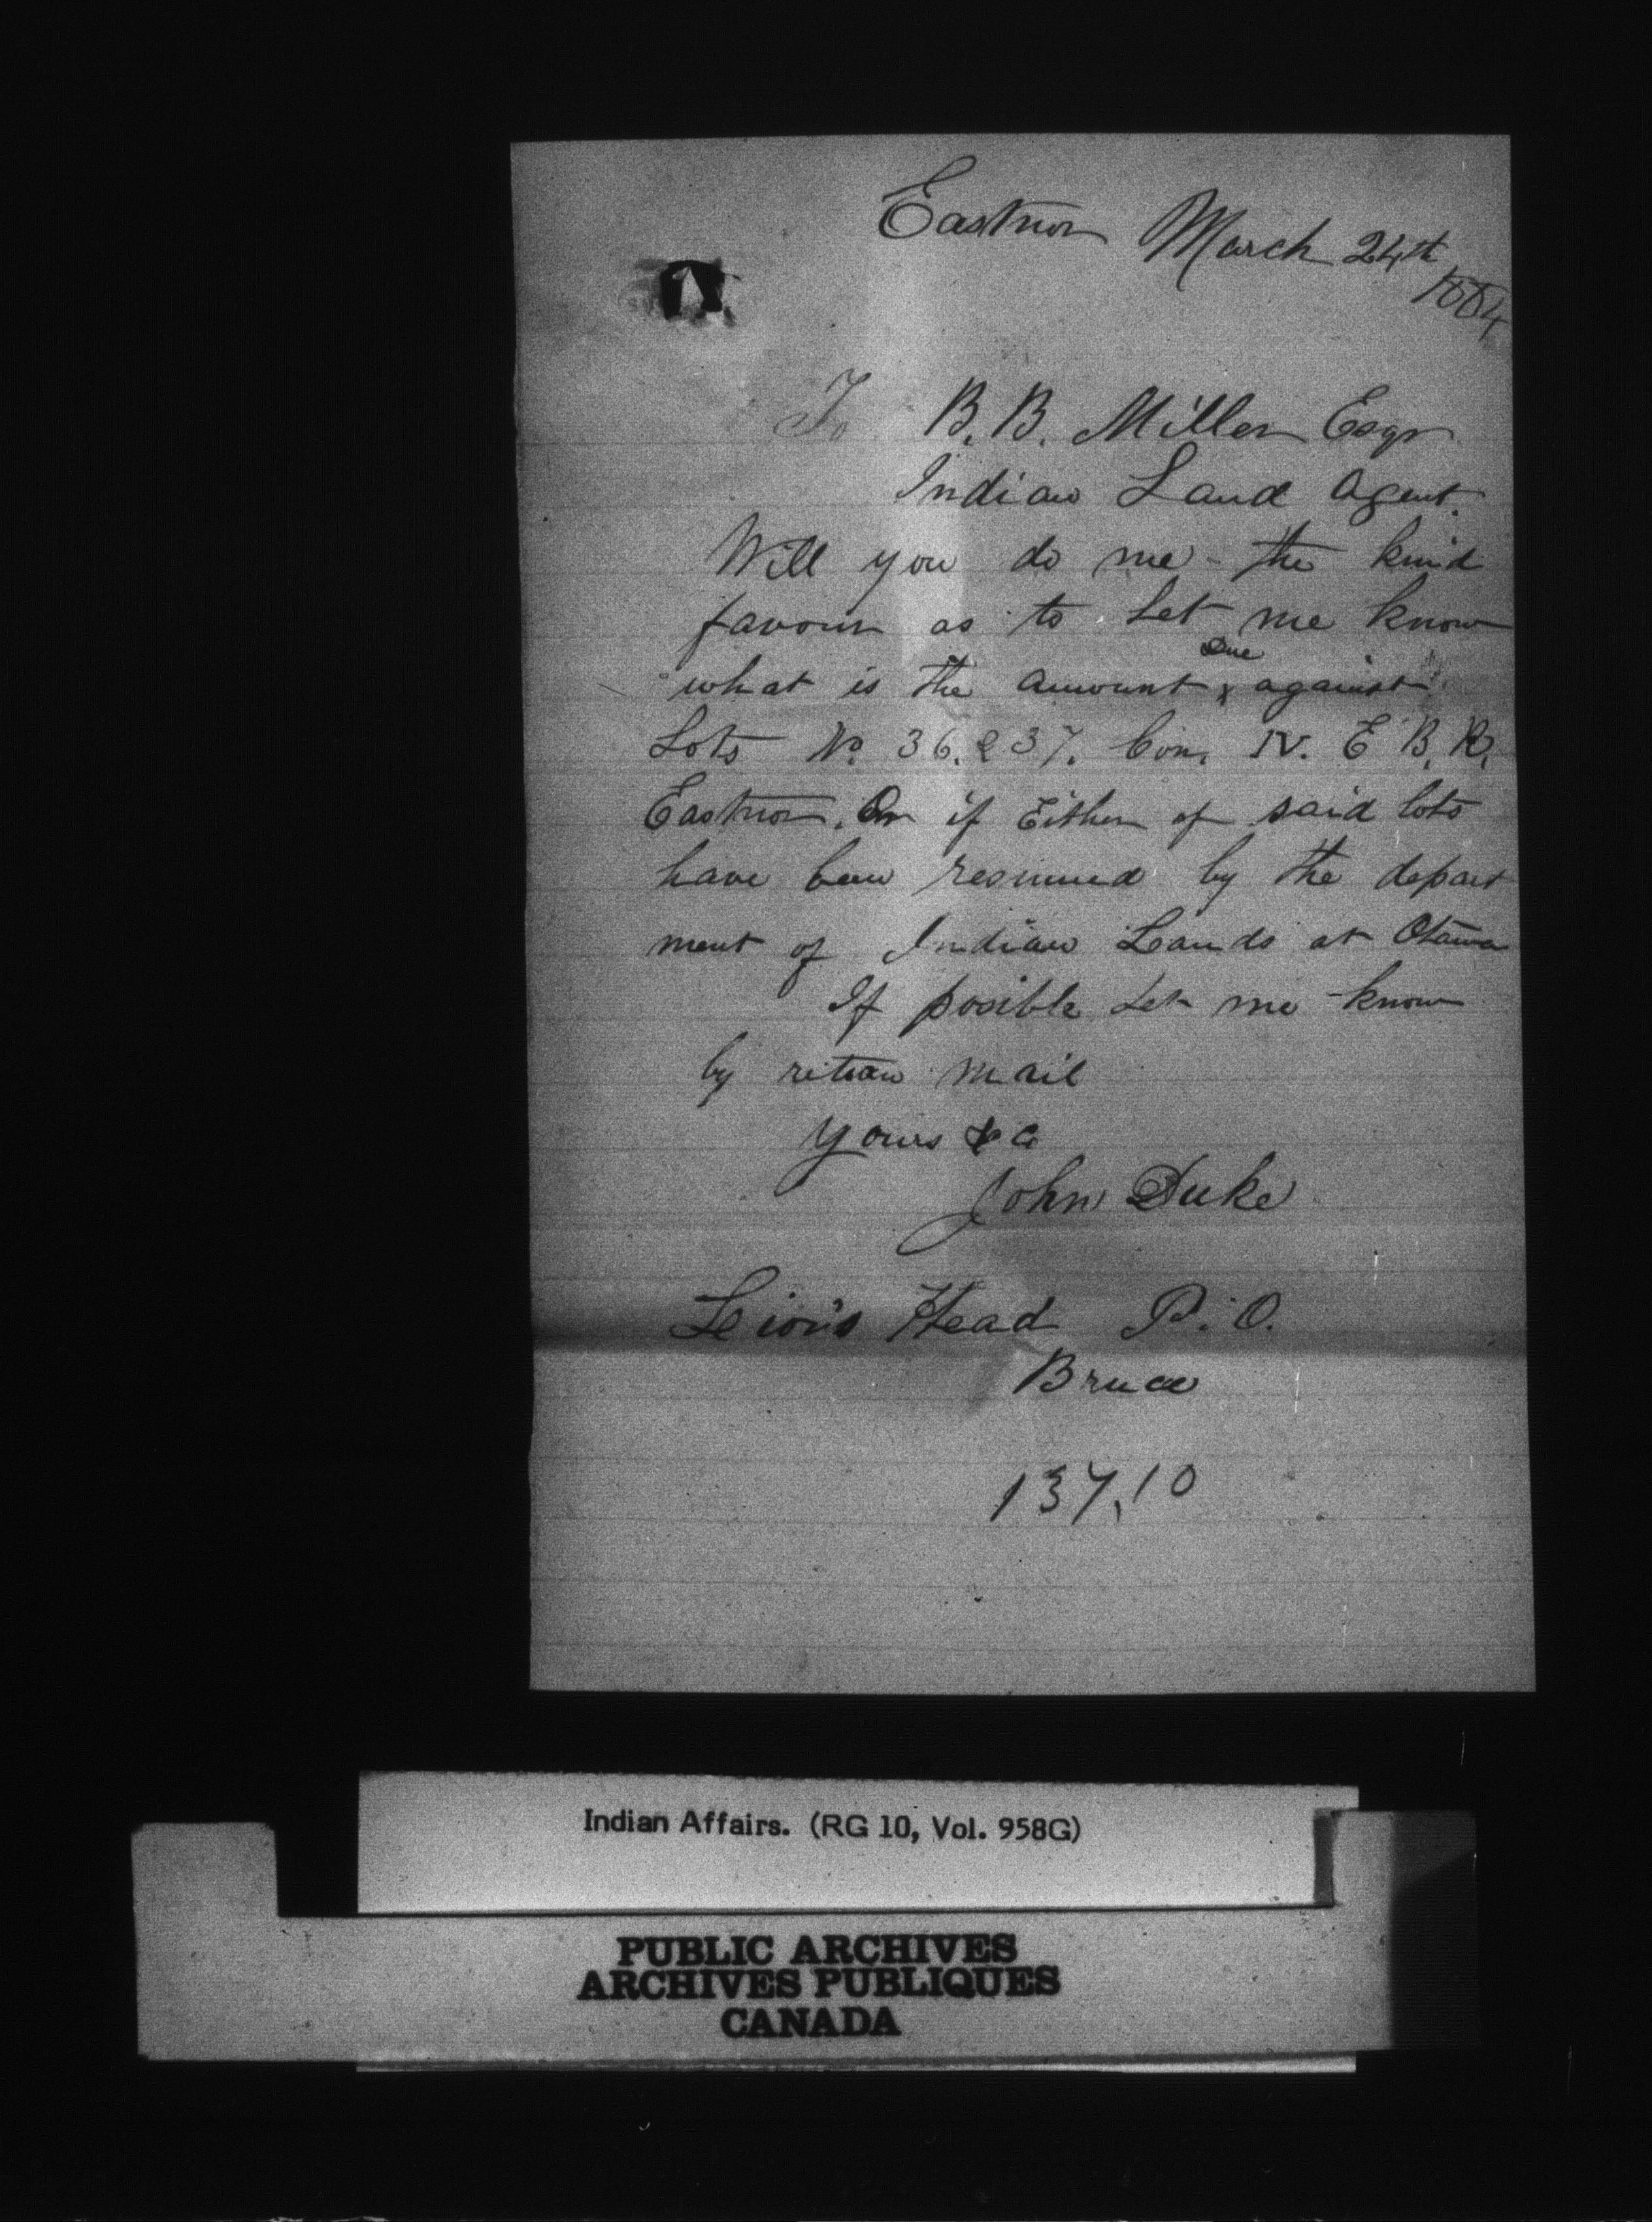 Eastnor March 24th
1884
To B. B. Miller Esqr
Indian Land Agent.
Will you do me the kind
favour as to Let me know
Due
what is the amount x against
Lots No. 36. & 37. Con. IV. E B. R.
Eastnor. Or if Either of said lots
have been resumed by the depart
ment of Indian Lands at Otawa
If posible Let me know
by return mail
Yours &c
John Duke
Leion's Head P. O.
Bruce
137.10
Indian Affairs. (RG 10, Vol. 958G)
PUBLIC ARCHIVES
ARCHIVES PUBLIQUES
CANADA